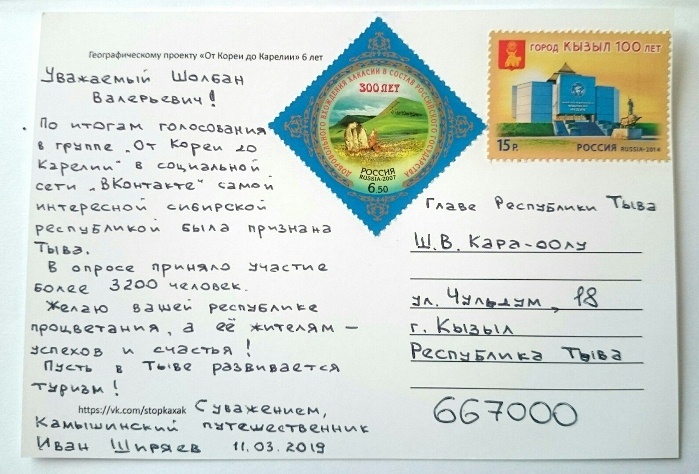 Географическому проекту «От Кореи до Карелии» 6 лет
Уважаемый Шолбан
Валерьевич!
По итогам голосования
в группе „От Кореи до
Карелии" в социальной
сети „ВКонтакте" самой
интересной сибирской
республикой была признана
Тыва.
В опросе приняло участие
более 3200 человек.
Желаю вашей республике
процветания, а её жителям —
успехов и счастья!
Пусть в Тыве развивается
туризм!
https://vk.com/stopkaxak
С уважением,
Камышинский путешественник
Иван Ширяев 11.03.2019
ДОБРОВОЛЬНОГО ВХОЖДЕНИЯ ХАКАСИИ В СОСТАВ РОССИЙСКОГО ГОСУДАРСТВА
300 ЛЕТ
РОССИЯ
RUSSIA·2007
6.50
ГОРОД КЫЗЫЛ 100 ЛЕТ
15 Р.
РОССИЯ RUSSIA·2014
Главе Республики Тыва
Ш.В. Кара-оолу
ул. Чульдум, 18
г. Кызыл
Республика Тыва
667000